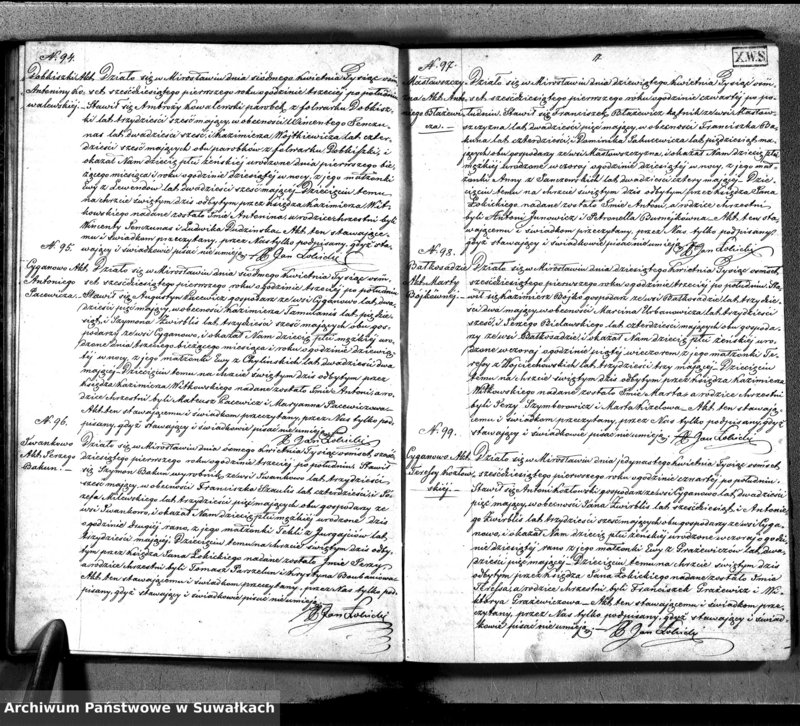 N. 94.
Dobkiszki Akt
Antoniny Ko-
walewskiej
Działo się w Mirosławiu dnia siódmego Kwietnia Tysiąc ośm-
set sześćdziesiątego pierwszego roku o godzinie trzeciej po południu
Stawił się Ambroży Kowalewski parobek z folwarku Dobkisz-
ki lat trzydzieści sześć mający w obecności Wincentego
lat dwadzieścia sześć i Kazimierza Wójtkiewicza lat czter-
dzieści sześć mających obu parobków z folwarku Dobkiszki, i
okazał Nam dziecię płci żeńskiej urodzone dnia pierwszego bie-
żącego miesiąca i roku o godzinie dziesiątej w nocy, z jego małżonki
Ewy z lat dwadzieścia sześć mającej. Dziecięciu temu
na chrzcie świętym dziś odbytym przez Księdza Kazimierza Wit-
kowskiego nadane zostało Imie Antonina, a rodzice chrzestni byli
Wincenty i Ludwika Akt ten stawające-
mu i świadkom przeczytany, przez Nas tylko podpisany, gdyż sta-
wający i świadkowie pisać nie umieją.
X Jan Łobicki
N. 95.
Cyganowo Akt
Antoniego
Pacewicza
Działo się w Mirosławiu dnia siódmego Kwietnia Tysiąc ośm-
set sześćdziesiątego pierwszego roku o godzinie trzeciej po południu
Stawił się Augustyn Pacewicz gospodarz ze wsi Cyganowo lat dwa-
dzieścia pięć mający, w obecności Kazimierza lat pięćdzie-
siąt, i Szymona Zwirblis lat trzydzieści sześć mających obu gos-
podarzy ze wsi Cyganowo, i okazał Nam dziecię płci męzkiej uro-
dzone dnia trzeciego bieżącego miesiąca i roku o godzinie dziewią-
tej w nocy, z jego małżonki Ewy z Chylińskich lat dwadzieścia dwa
mającej. Dziecięciu temu na chrzcie świętym dziś odbytym przez
Księdza Kazimierza Witkowskiego nadane zostało Imie Antoni, a ro-
dzice chrzestni byli Mateusz Pacewicz i Maryanna Pacewiczowa
Akt ten stawającemu i świadkom przeczytany, przez Nas tylko pod-
pisany, gdyż stawający i świadkowie pisać nie umieją.
X Jan Łobicki
N. 96.
Iwankowo
Akt Jerzego
Bakun.
Działo się w Mirosławiu dnia ósmego Kwietnia Tysiąc ośmset sześć-
dziesiątego pierwszego roku o godzinie trzeciej po południu. Stawił
się Szymon Bakun wyrobnik ze wsi Iwankowo lat trzydzieści
sześć mający, w obecności Franciszka Szaulis lat czterdzieści i Jó-
zefa Milewskiego lat trzydzieści pięć mających obu gospodarzy ze
wsi Iwankowo, i okazał Nam dziecię płci męzkiej urodzone dziś
o godzinie drugiej rano, z jego małżonki Tekli z lat
trzydzieści mającej. Dziecięciu temu na chrzcie świętym dziś odby-
tym przez Księdza Jana Łobickiego nadane zostało Imie Jerzy
a rodzice chrzestni byli Tomasz i Krystyna
Akt ten stawającemu i świadkom przeczytany, przez Nas tylko pod-
pisany, gdyż stawający i świadkowie pisać nie umieją.
X Jan Łobicki
X.W.S.
N. 97.
Mastawszczy-
zna Akt Anto-
niego Błażewi-
cza.
Działo się w Mirosławiu dnia dziewiątego Kwietnia Tysiąc ośm-
set sześćdziesiątego pierwszego roku o godzinie czwartej po po-
łudniu. Stawił się Franciszek Błażewicz kątnik ze wsi Mastaw-
szczyzna lat dwadzieścia pięć mający, w obecności Franciszka Ba-
kuna lat czterdzieści i Dominika lat pięćdziesiąt ma-
jących obu gospodarzy ze wsi Mastawszczyzna, i okazał Nam dziecię płci
męzkiej urodzone wczoraj o godzinie dziesiątej w nocy, z jego mał-
żonki Anny z lat dwadzieścia cztery mającej. Dzie-
cięciu temu na chrzcie świętym dziś odbytym przez Księdza Jana
Łobickiego nadane zostało Imie Antoni, a rodzice chrzestni
byli Antoni Junowicz i Petronella Akt ten sta-
wającemu i świadkom przeczytany, przez Nas tylko podpisany,
gdyż stawający i świadkowie pisać nie umieją.
X Jan Łobicki
N. 98.
Bałkosadzie
Akt Marty
Bojkównej.
Działo się w Mirosławiu dnia dziesiątego Kwietnia Tysiąc ośmset
sześćdziesiątego pierwszego roku o godzinie trzeciej po południu. Sta-
wił się Kazimierz Bojko gospodarz ze wsi Bałkosadzie lat trzydzie-
ści dwa mający, w obecności Marcina Urbanowicza lat trzydzieści
sześć, i Jerzego Bielawskiego lat czterdzieści mających obu gospoda-
rzy ze wsi Bałkosadzie i okazał Nam dziecię płci żeńskiej uro-
dzone wczoraj o godzinie piątej wieczorem z jego małżonki Te-
resy z Wojciechowskich lat trzydzieści trzy mającej. Dziecięciu
temu na chrzcie świętym dziś odbytym przez Księdza Kazimierza
Witkowskiego nadane zostało Imie Marta a rodzice chrzestni
byli Jerzy Szymborowicz i Marta Akt ten stawają-
cemu i świadkom przeczytany, przez Nas tylko podpisany, gdyż
stawający i świadkowie pisać nie umieją.
X Jan Łobicki
N. 99.
Cyganowo Akt
Teresy Kozłow-
skiej.
Działo się w Mirosławiu dnia jedynastego Kwietnia Tysiąc ośmset
sześćdziesiątego pierwszego roku o godzinie czwartej po południu.
Stawił się Antoni Kozłowski gospodarz ze wsi Cyganowo lat dwadzieścia
pięć mający, w obecności Jana Zwirblis lat sześćdziesiąt, i Antonie-
go Zwirblis lat trzydzieści sześć mających obu gospodarzy ze wsi Cyga-
nowo, i okazał Nam dziecię płci żeńskiej urodzone wczoraj o godzi-
nie dziesiątej rano z jego małżonki Ewy z Grażewiczów lat dwa-
dzieścia pięć mającej. Dziecięciu temu na chrzcie świętym dziś
odbytym, przez Księdza Jana Łobickiego nadane zostało Imie
Teressa, a rodzice chrzestni byli Franciszek Grażewicz i Wi-
ktorya Grażewiczowa. Akt ten stawającemu i świadkom prze-
czytany, przez Nas tylko podpisany, gdyż stawający i świad-
kowie pisać nie umieją.
X Jan Łobicki
Archiwum Państwowe w Suwałkach